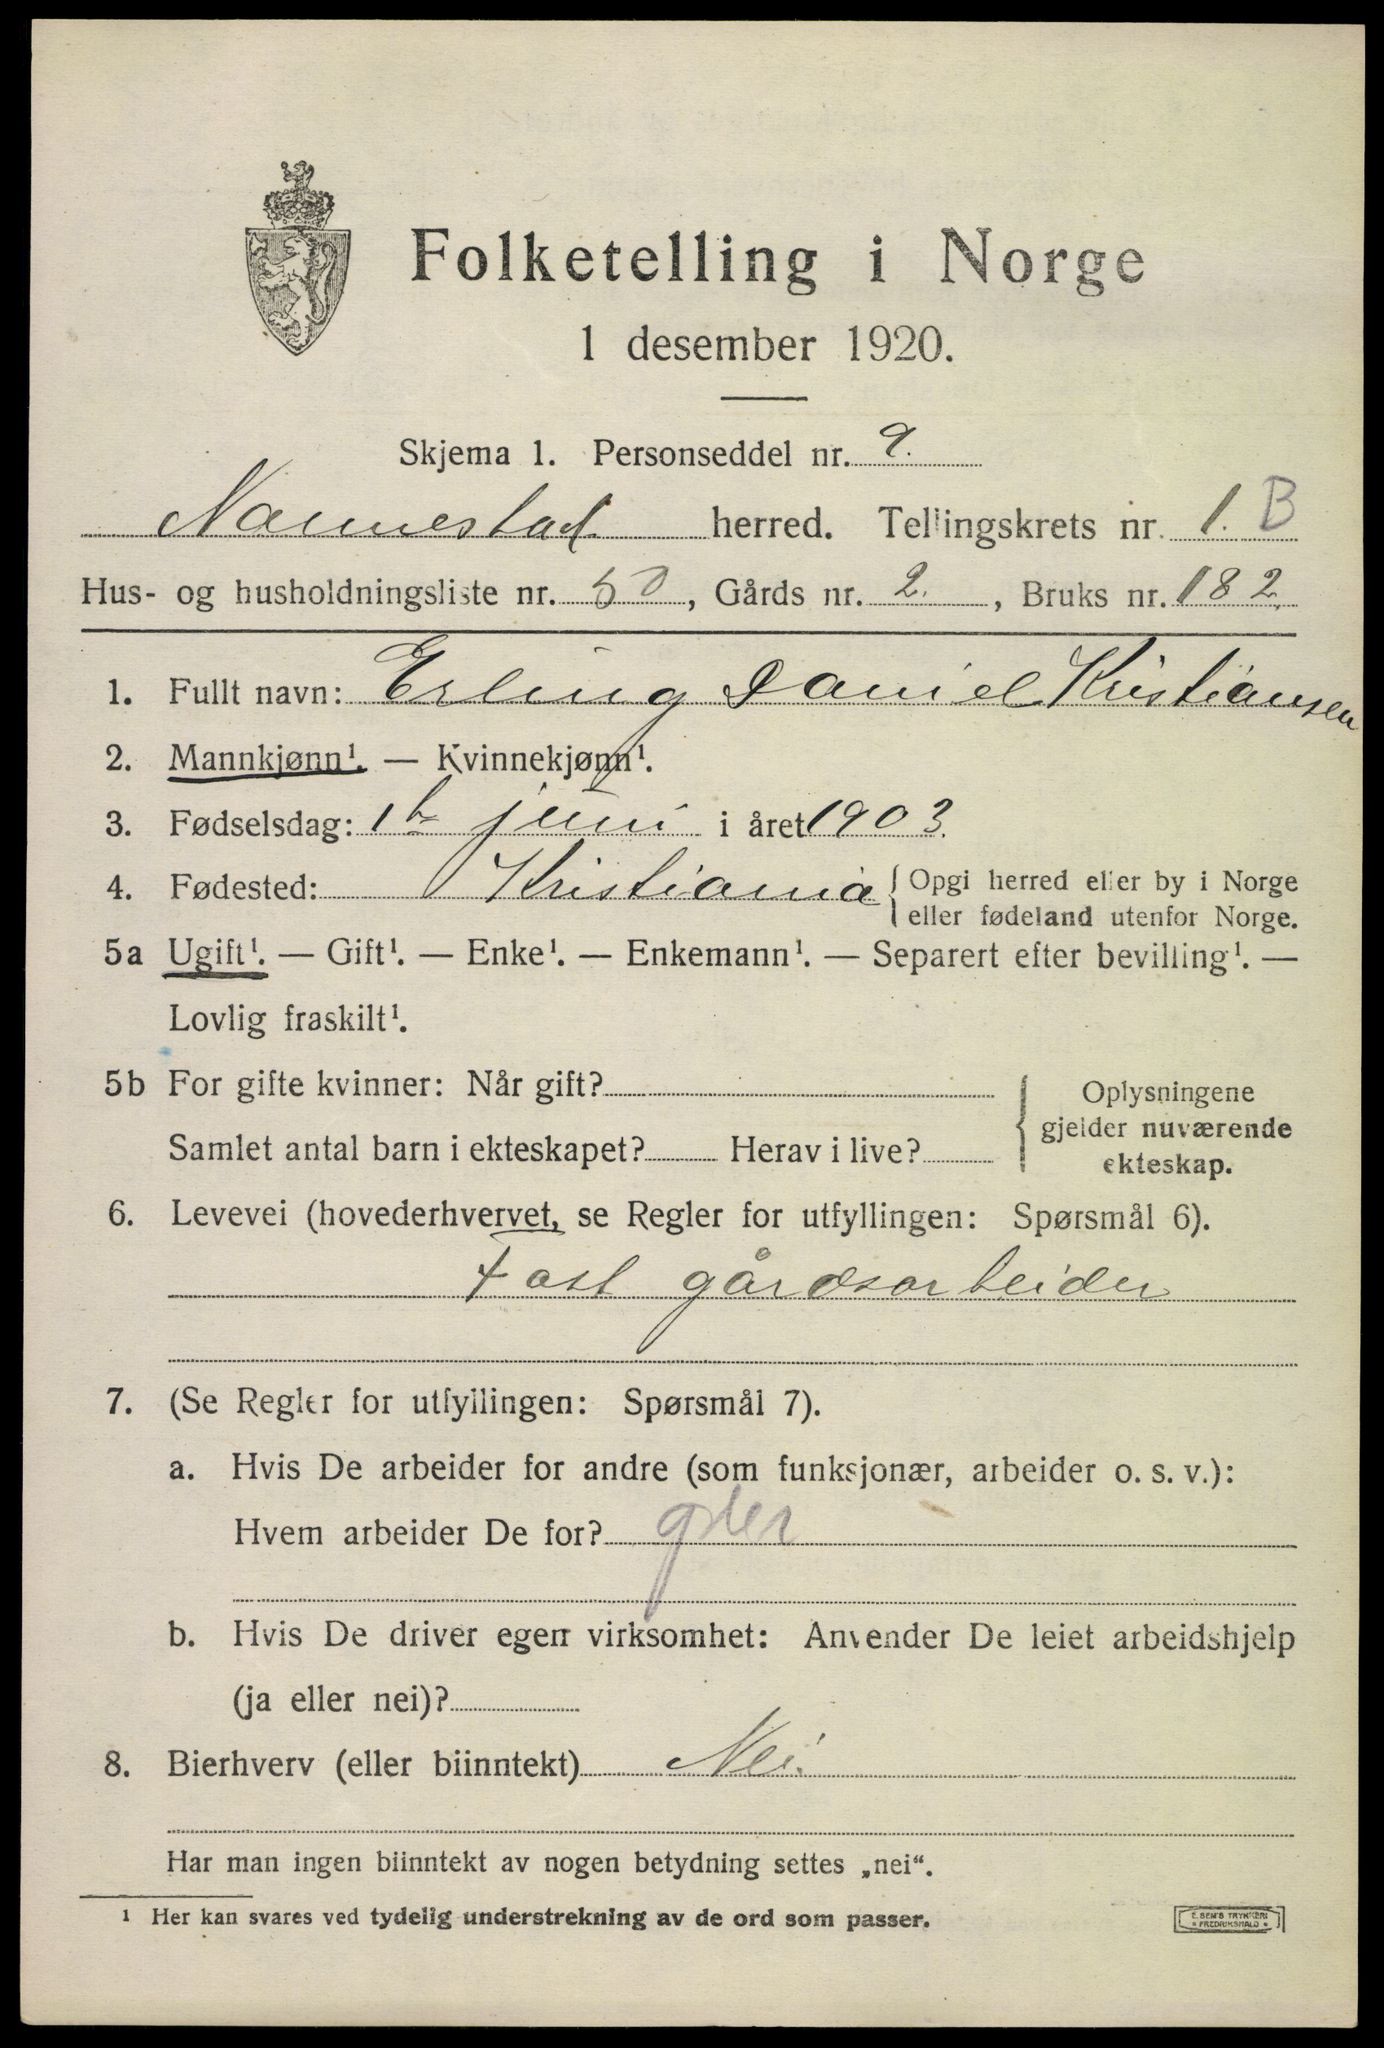 Folketelling i Norge
1 desember 1920.
Skjema 1. Personseddel nr. 9.
Nannestad herred. Tellingskrets nr. 1. B
Hus- og husholdningsliste nr. 50, Gårds nr. 2., Bruks nr. 182.
1. Fullt navn: Erling Daniel Kristiansen
2. Mannkjønn¹. — Kvinnekjønn¹.
3. Fødselsdag: 1ste juni i året 1903.
4. Fødested: Kristiania { Opgi herred eller by i Norge
eller fødeland utenfor Norge.
5a Ugift¹. — Gift¹. — Enke¹. — Enkemann¹. — Separert efter bevilling¹. —
Lovlig fraskilt¹.
5b For gifte kvinner: Når gift?
Samlet antal barn i ekteskapet? Herav i live?
Oplysningene
gjelder nuværende
ekteskap.
6. Levevei (hovederhvervet, se Regler for utfyllingen: Spørsmål 6).
Fast gårdsarbeider
7. (Se Regler for utfyllingen: Spørsmål 7).
a. Hvis De arbeider for andre (som funksjonær, arbeider o. s. v.):
Hvem arbeider De for?
b. Hvis De driver egen virksomhet: Anvender De leiet arbeidshjelp
(ja eller nei)?
8. Bierhverv (eller biinntekt) Nei.
Har man ingen biinntekt av nogen betydning settes „nei“.
¹ Her kan svares ved tydelig understrekning av de ord som passer.
E. SEM'S TRYKKERI
• FREDRIKSHALD •